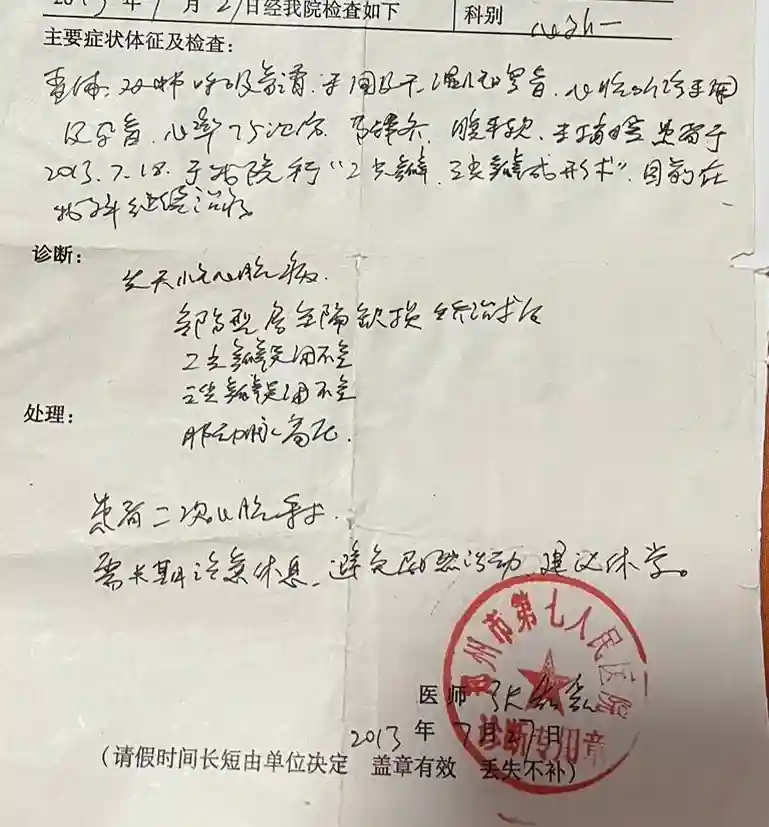 2013 年 7 月 27 日经我院检查如下 科别 心外一
主要症状体征及检查：
查体：双肺呼吸音清，未闻及干湿性啰音，心脏听诊未闻
及杂音，心率75次/分，律齐，腹平软，患者于
2013.7.18.于我院行“二尖瓣、三尖瓣成形术”，目前在
我科继续治疗
诊断：
先天性心脏病
部分型房室隔缺损矫治术后
二尖瓣关闭不全
三尖瓣关闭不全
肺动脉高压．
处理：
患者二次心脏手术．
需长期注意休息，避免剧烈活动，建议休学。
郑州市第七人民医院
诊断专用章
医师 张
2013 年 7 月 27 日
(请假时间长短由单位决定 盖章有效 丢失不补)